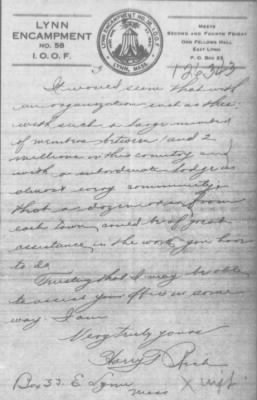 LYNN
ENCAMPMENT
NO. 58
I. O. O. F.
LYNN ENCAMPMENT No. 58, I.O.O.F.
LYNN, MASS.
MEETS
SECOND AND FOURTH FRIDAY
ODD FELLOWS HALL
EAST LYNN
P. O. BOX 33
3
126343
It would seem that with
an organization such as this
with such a large number
of members between 1 and 2
millions in this country
with a subordinate lodge in
almost every community
that a dozen or so from
each town could be of great
assistance in the work you have
to do
Trusting that I may be able
to assist your office in some
way. I am
Very truly yours
Harry
Box 33. E Lynn
Mass